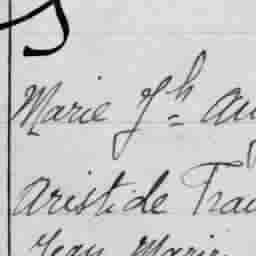 Marie Jh Au
Aristide Trau
Jean Marie